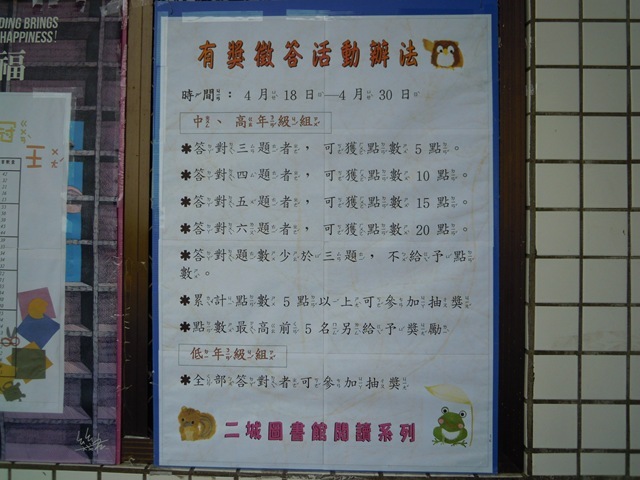 DING BRINGS
HAPPINESS!
福
冠
王
有獎徵答活動辦法
時間：4月18日—4月30日
中、高年級組
✱答對三題者，可獲點數5點。
✱答對四題者，可獲點數10點。
✱答對五題者，可獲點數15點。
✱答對六題者，可獲點數20點。
✱答對題數少於三題，不給予點
數。
✱累計點數5點以上可參加抽獎
✱點數最高前5名另給予獎勵
低年級組
✱全部答對者可參加抽獎
二城圖書館閱讀系列